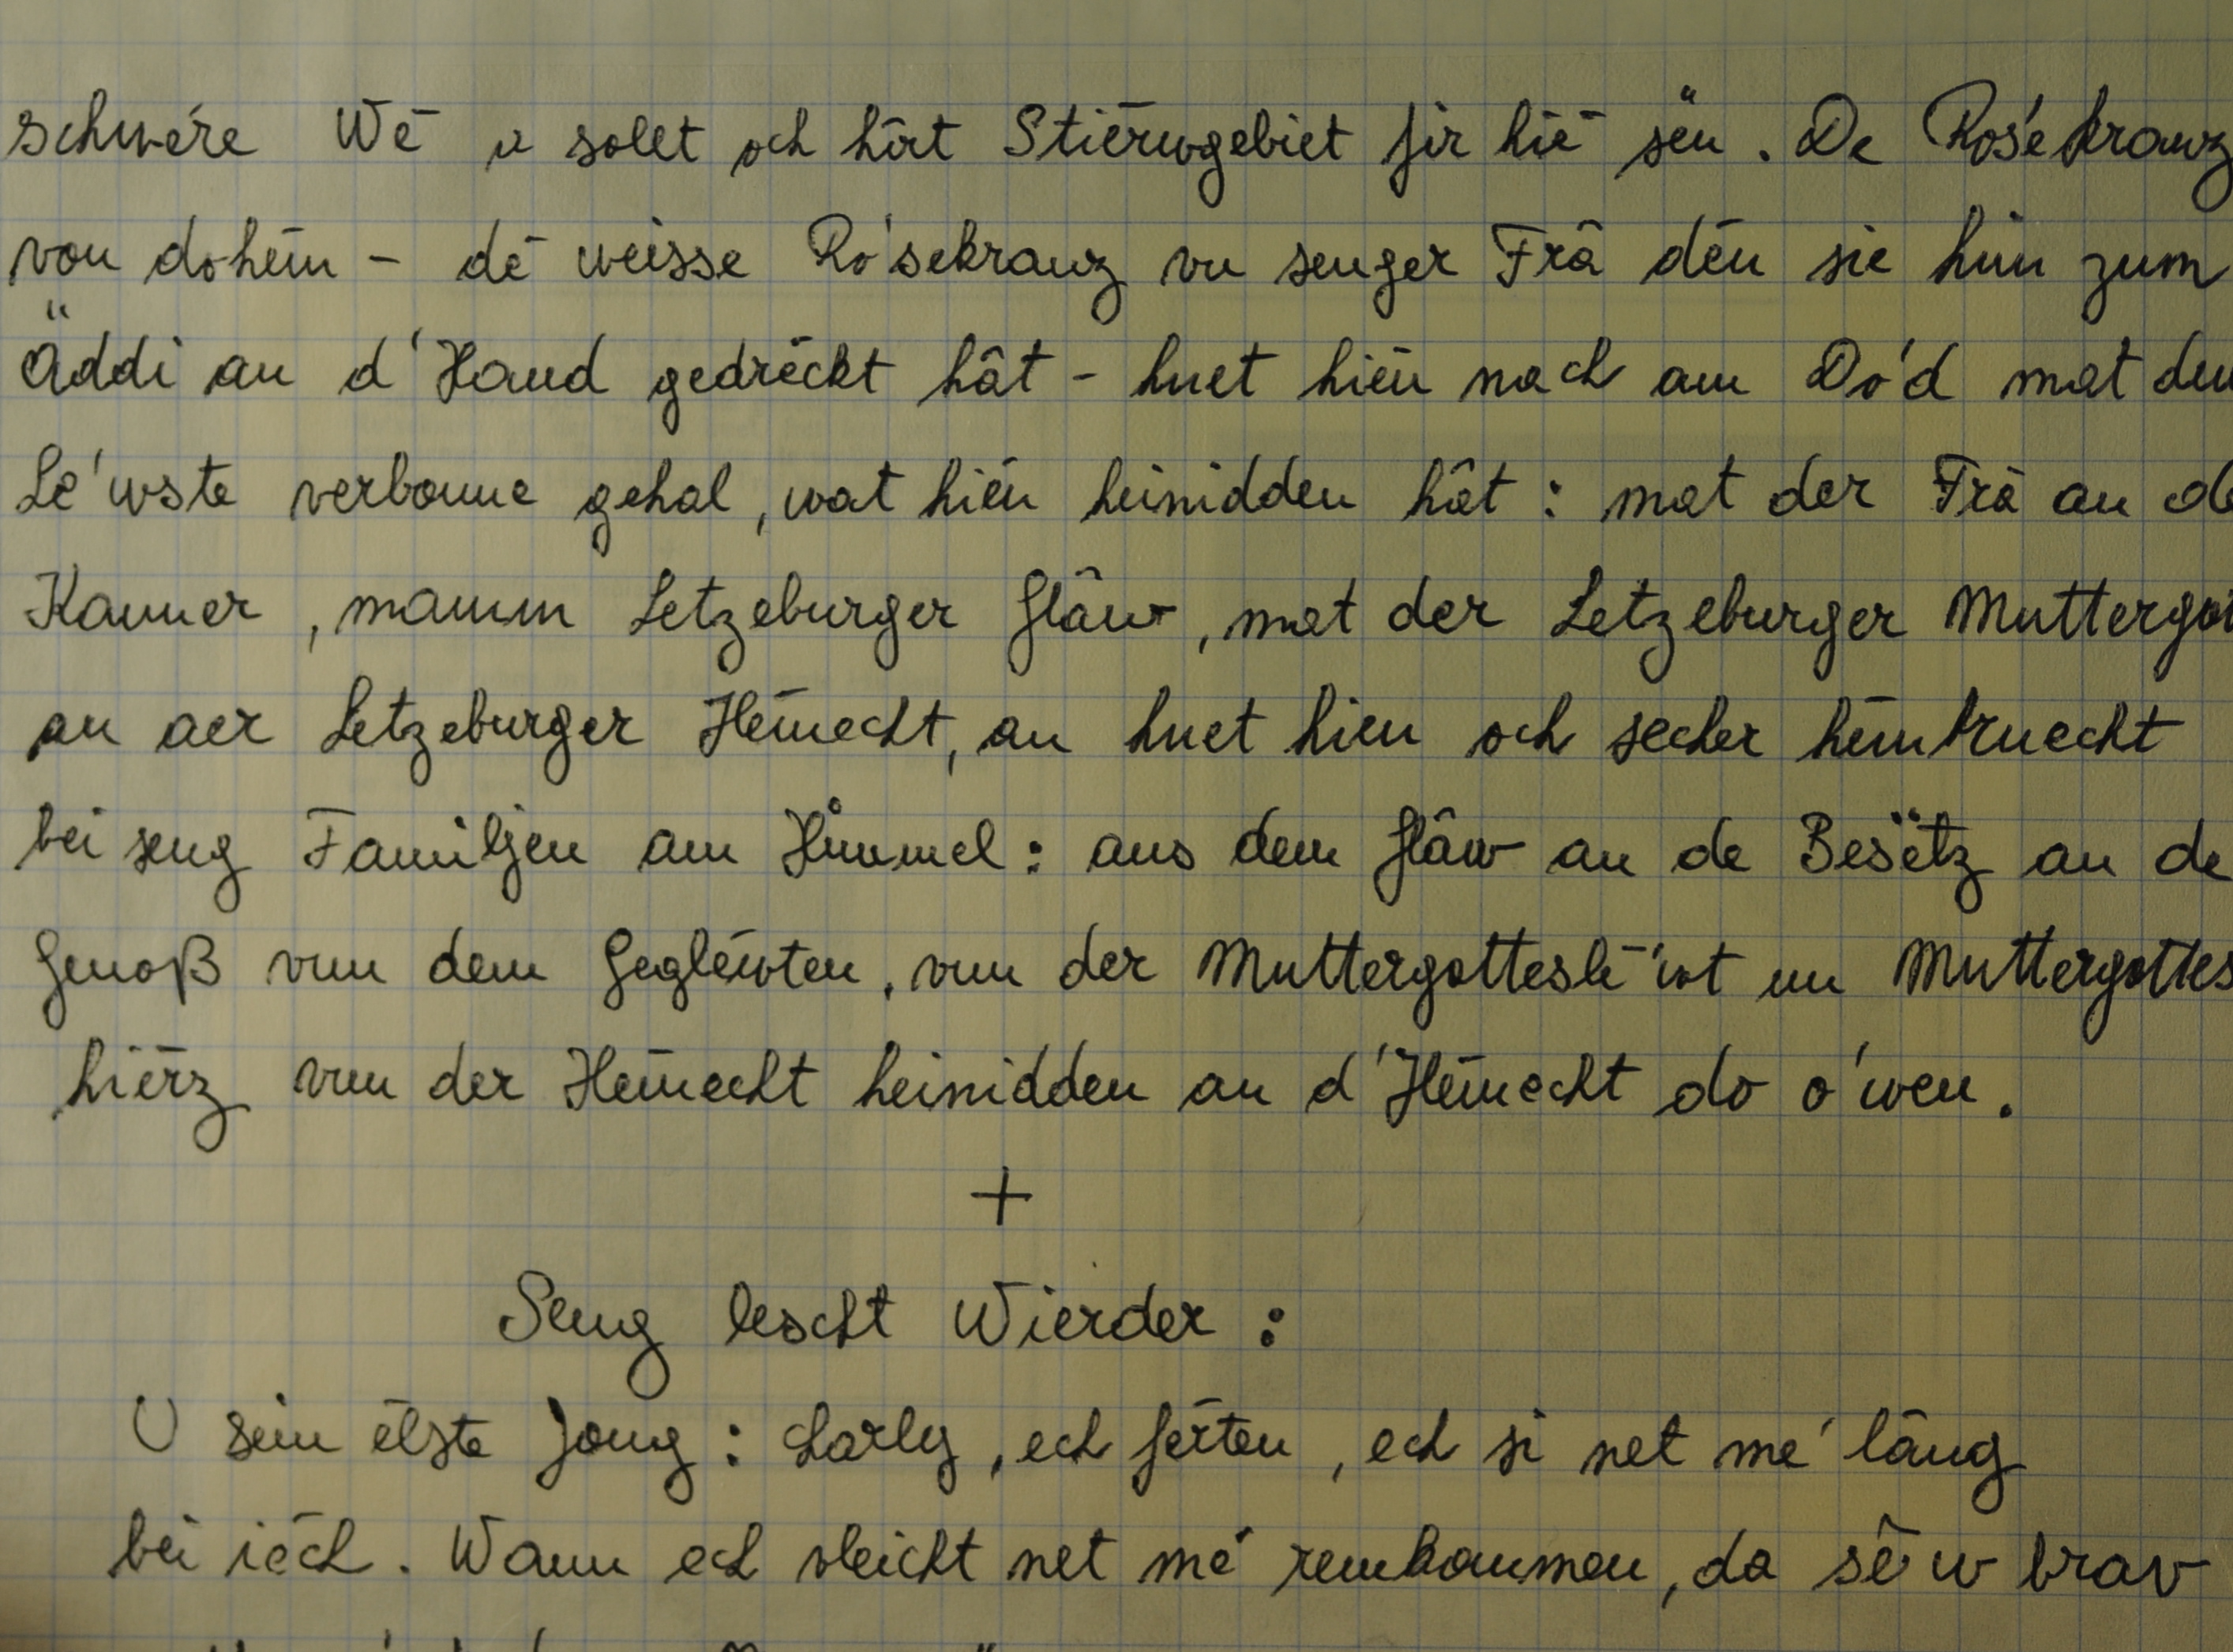 schwére Wé u sollt och hirt Stierwgebiet fir hie sën. De Rósekranz
von dohém - dé weisse Ró'sekranz vu senger Frâ dén sie him zum
Äddi an d'Hand gedréckt hât - huet hién nach am Do'd mat dem
Le'wste verbonne gehal, wat hién heinidden hât : mat der Frâ an de
Kanner, mamm Letzeburger Glâw, mat der Letzeburger Muttergot
an der Letzeburger Hémecht, an huet hien och secher hémbruecht
bei seng Familjen am Himmel : aus dem Glâw an de Besëtz an de
Genoß vun dem Gegléwten, vun der Muttergotteslé'wt un Muttergottes
hierz vun der Hémecht heinidden an d'Hémecht do o'wen.
+
Seng lescht Wierder :
U sein élste Jong : Charly, ech férten, ech si net me' lâng
bei iéch. Wann ech vleicht net mé remkommen, da sé'w brav